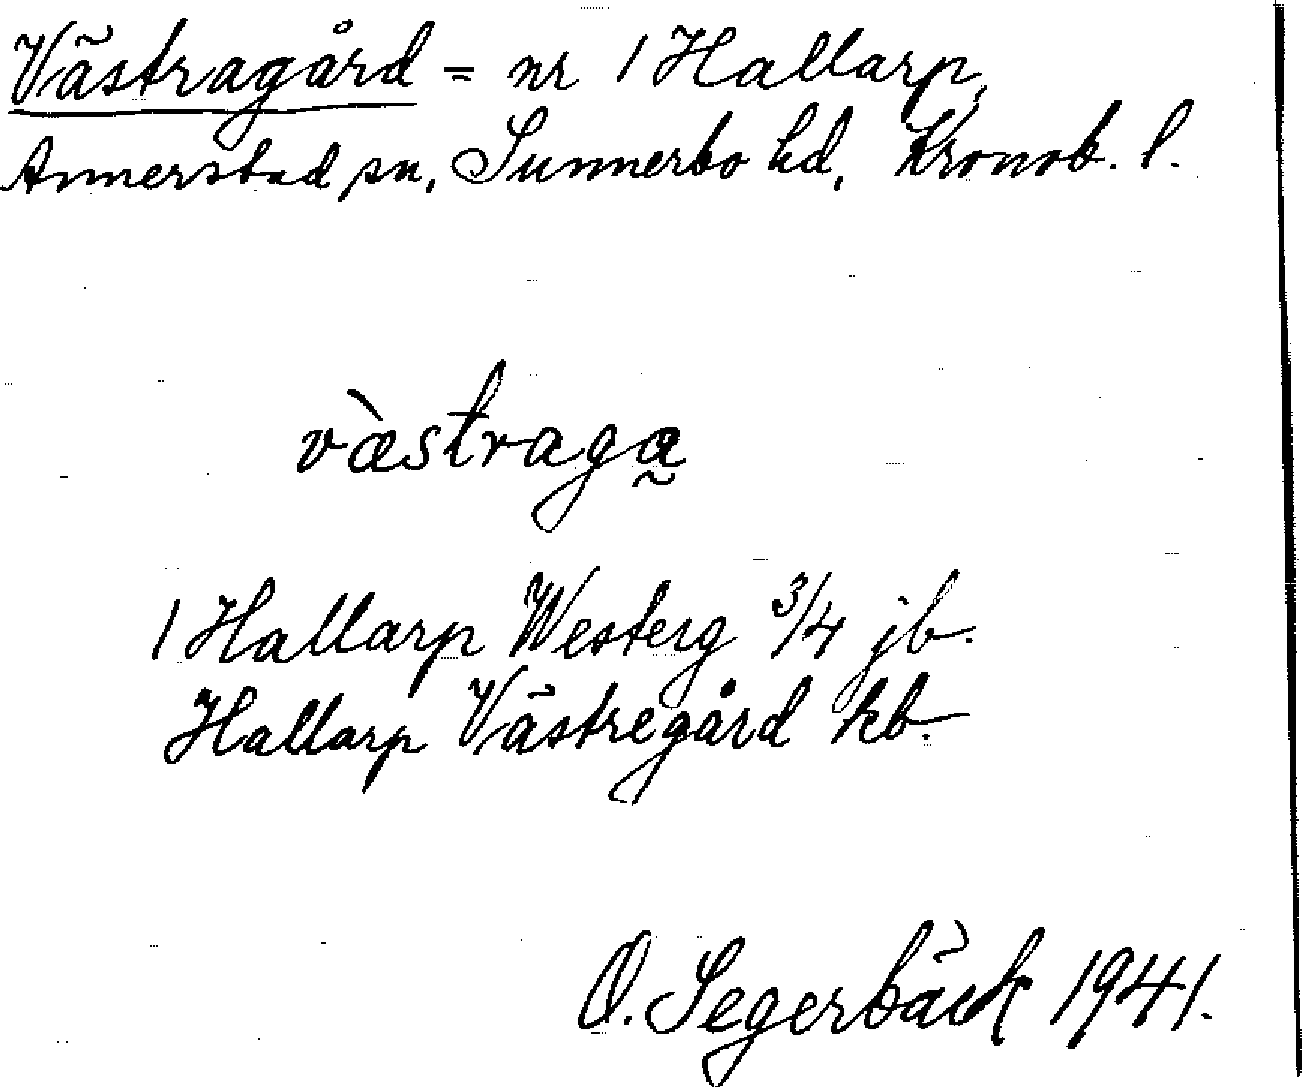 Västragård = nr 1 Hallarp,
Annerstad sn, Sunnerbo hd, Kronob. l.
væ̀straga̰
1 Hallarp Westerg 3/4 jb.
Hallarp Västregård kb.
O. Segerbäck 1941.